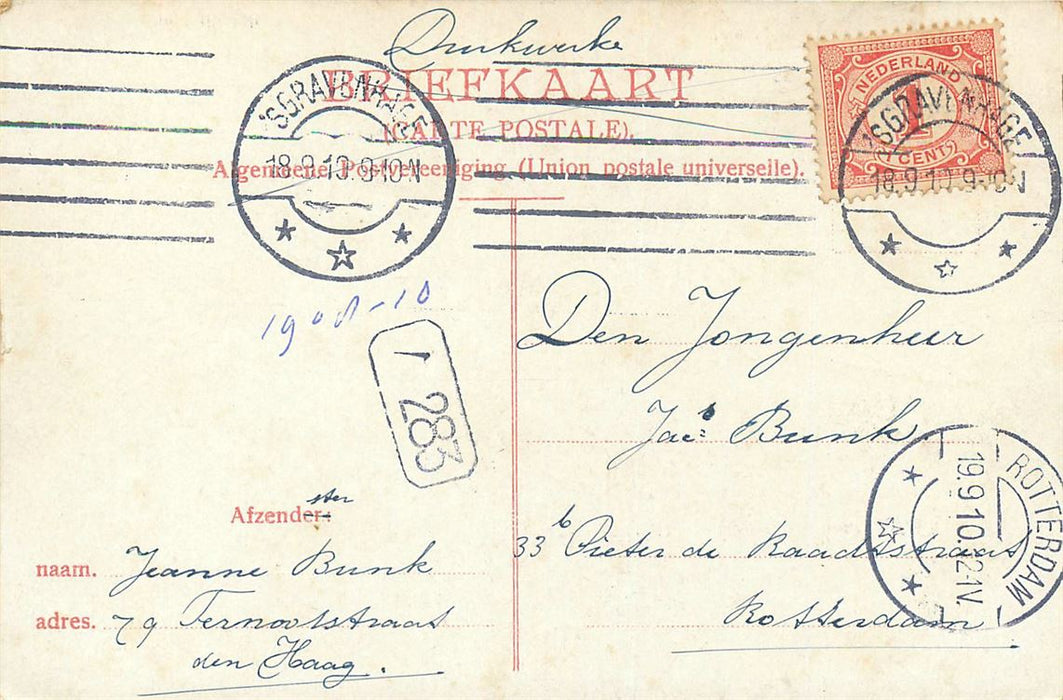 Drukwerk
BRIEFKAART
(CARTE POSTALE).
Algemeene Postvereeniging (Union postale universelle).
NEDERLAND
1
1 CENT
'SGRAVENHAGE
18.9.10.9-10N
'SGRAVENHAGE
18.9.10 9-10N
1908-10
1
283
Den Jongenheer
Jac.s Bunk
33b Pieter de Raadtstraat
Rotterdam
ROTTERDAM
19.9.10.12-1V.
Afzender: ster
naam. Jeanne Bunk
adres. 79 Ternootstraat
den Haag.